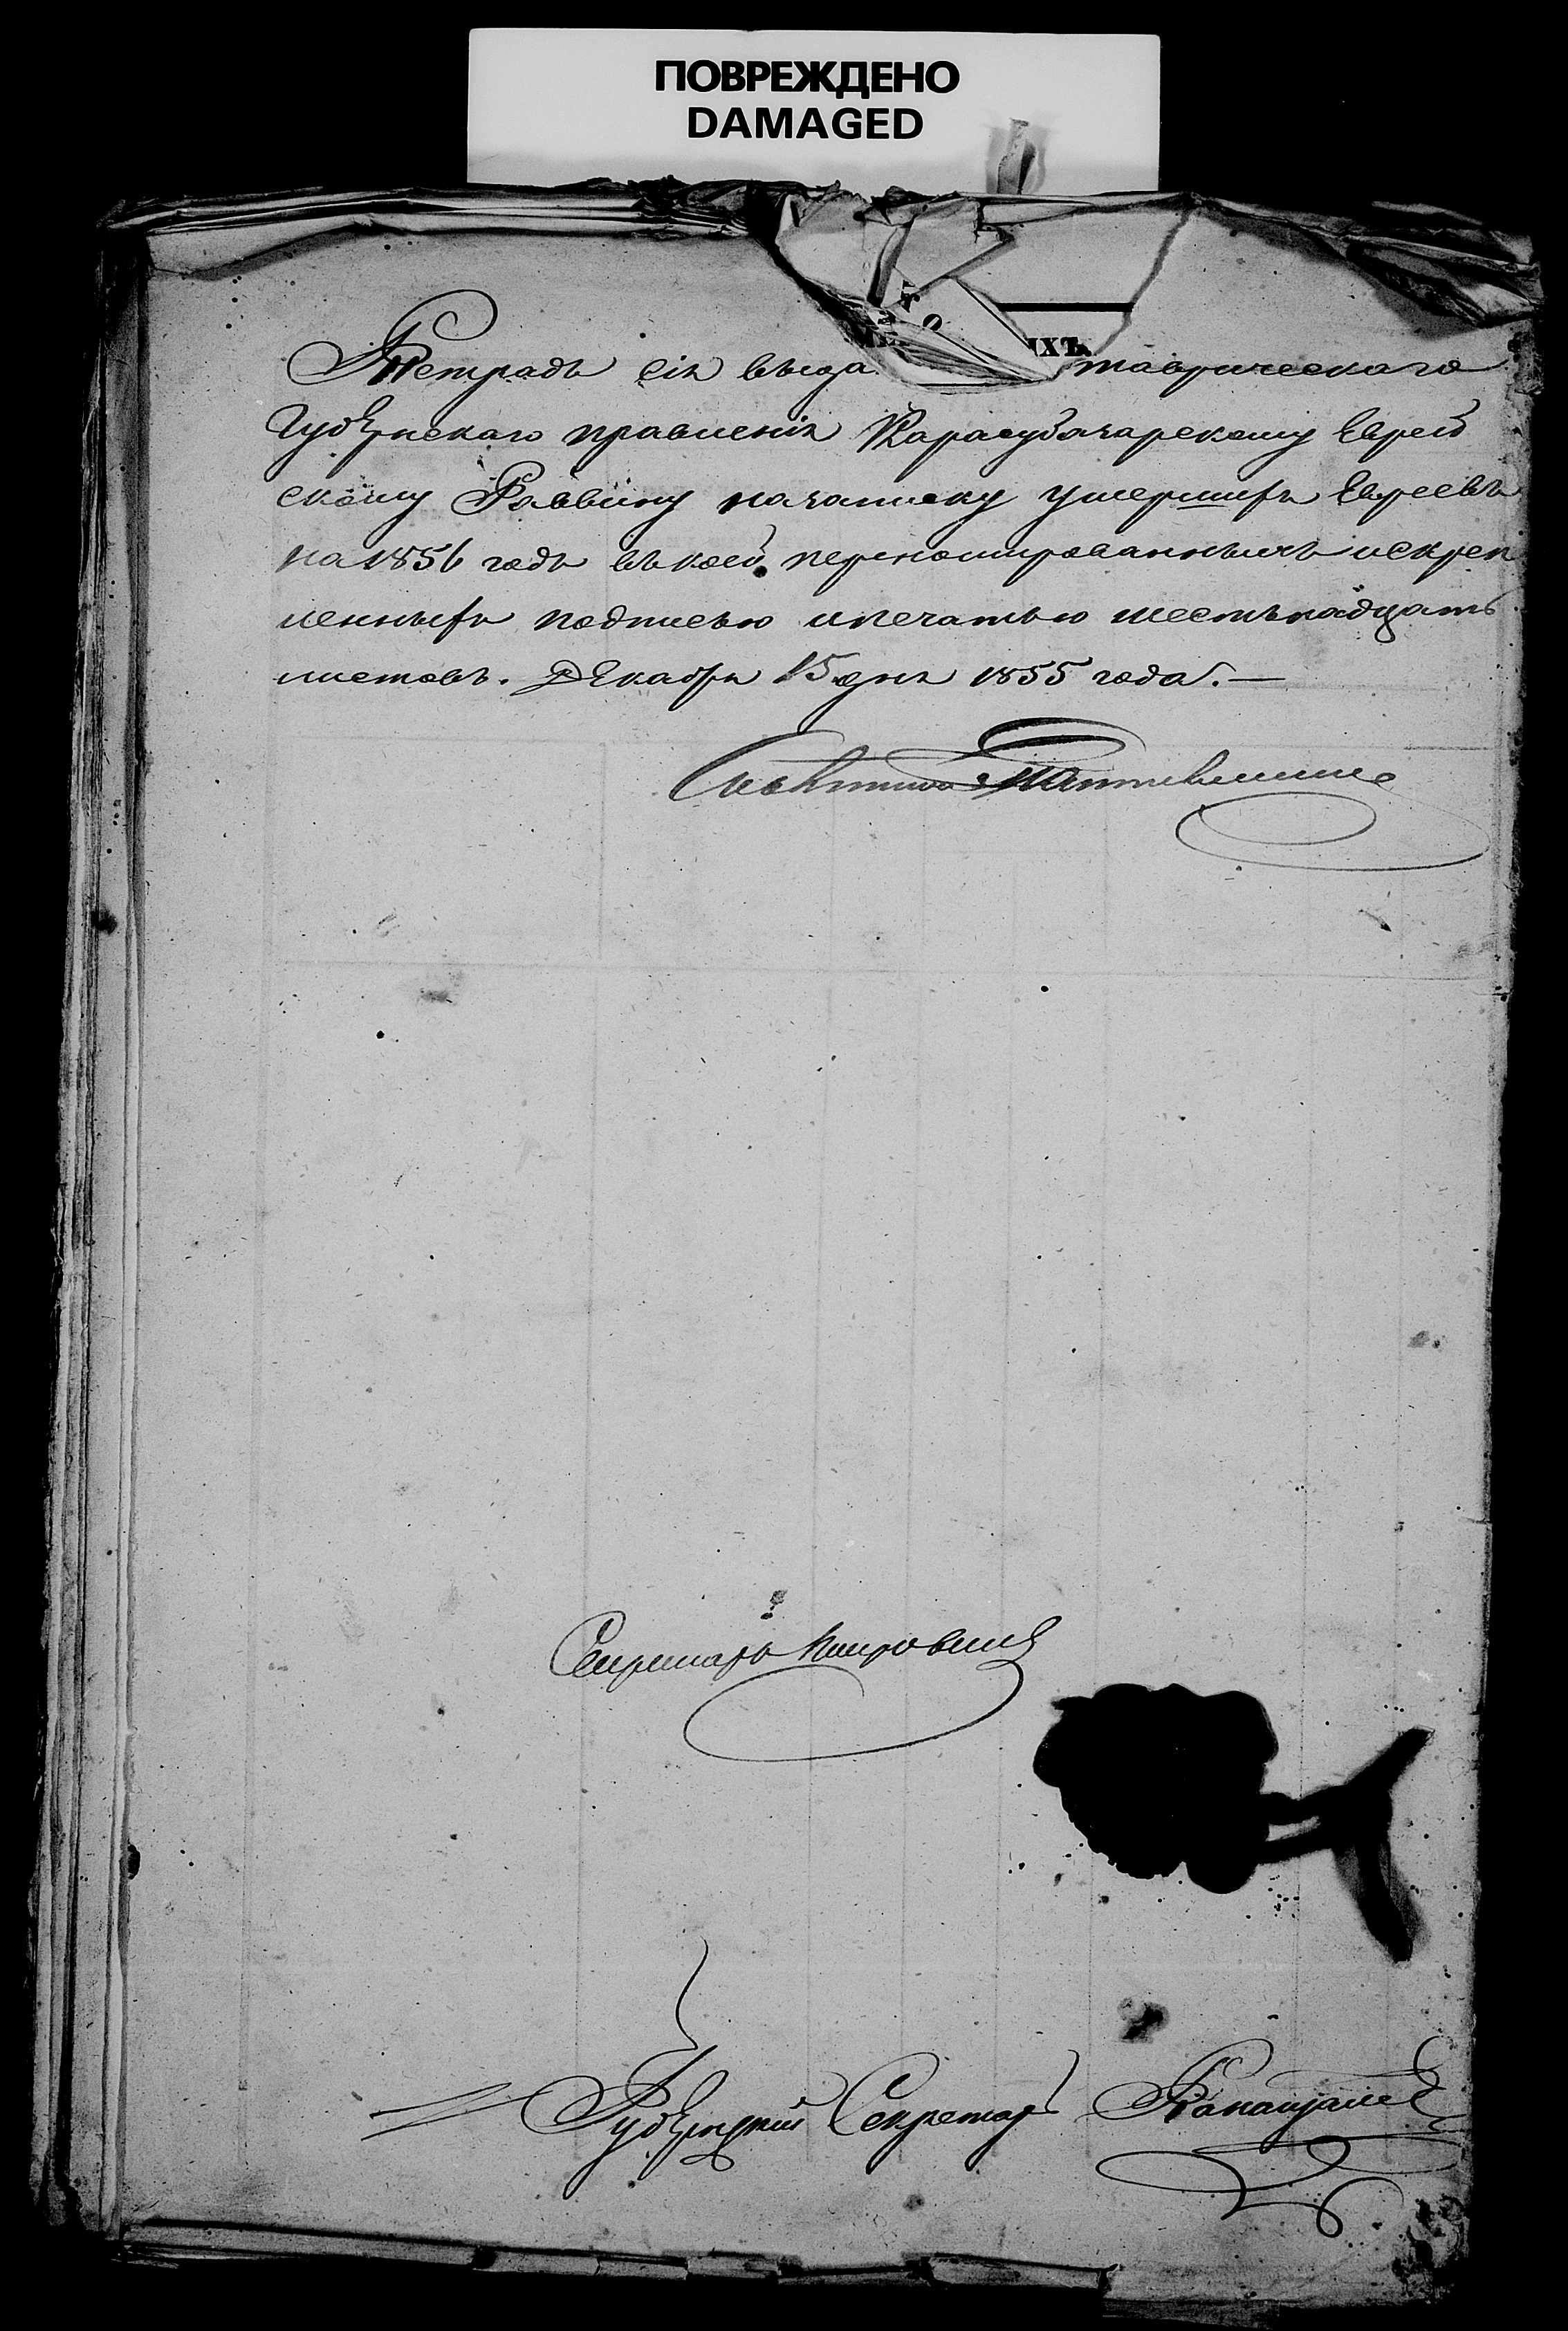 ПОВРЕЖДЕНО
DAMAGED
ИХЪ
Тетрадь сія выда Таврическаго
Губернскаго правленія Карасубазарскому Еврей
скому Раввину на записку умершихъ Евреевъ
на 1856 годъ въ коей переномированныхъ искреп
ленныхъ подписью и печатью шестьнадцать
листовъ. Декабря 15 дня 1855 года. —
Совѣтникъ
Секретарь
Губернский Секретарь